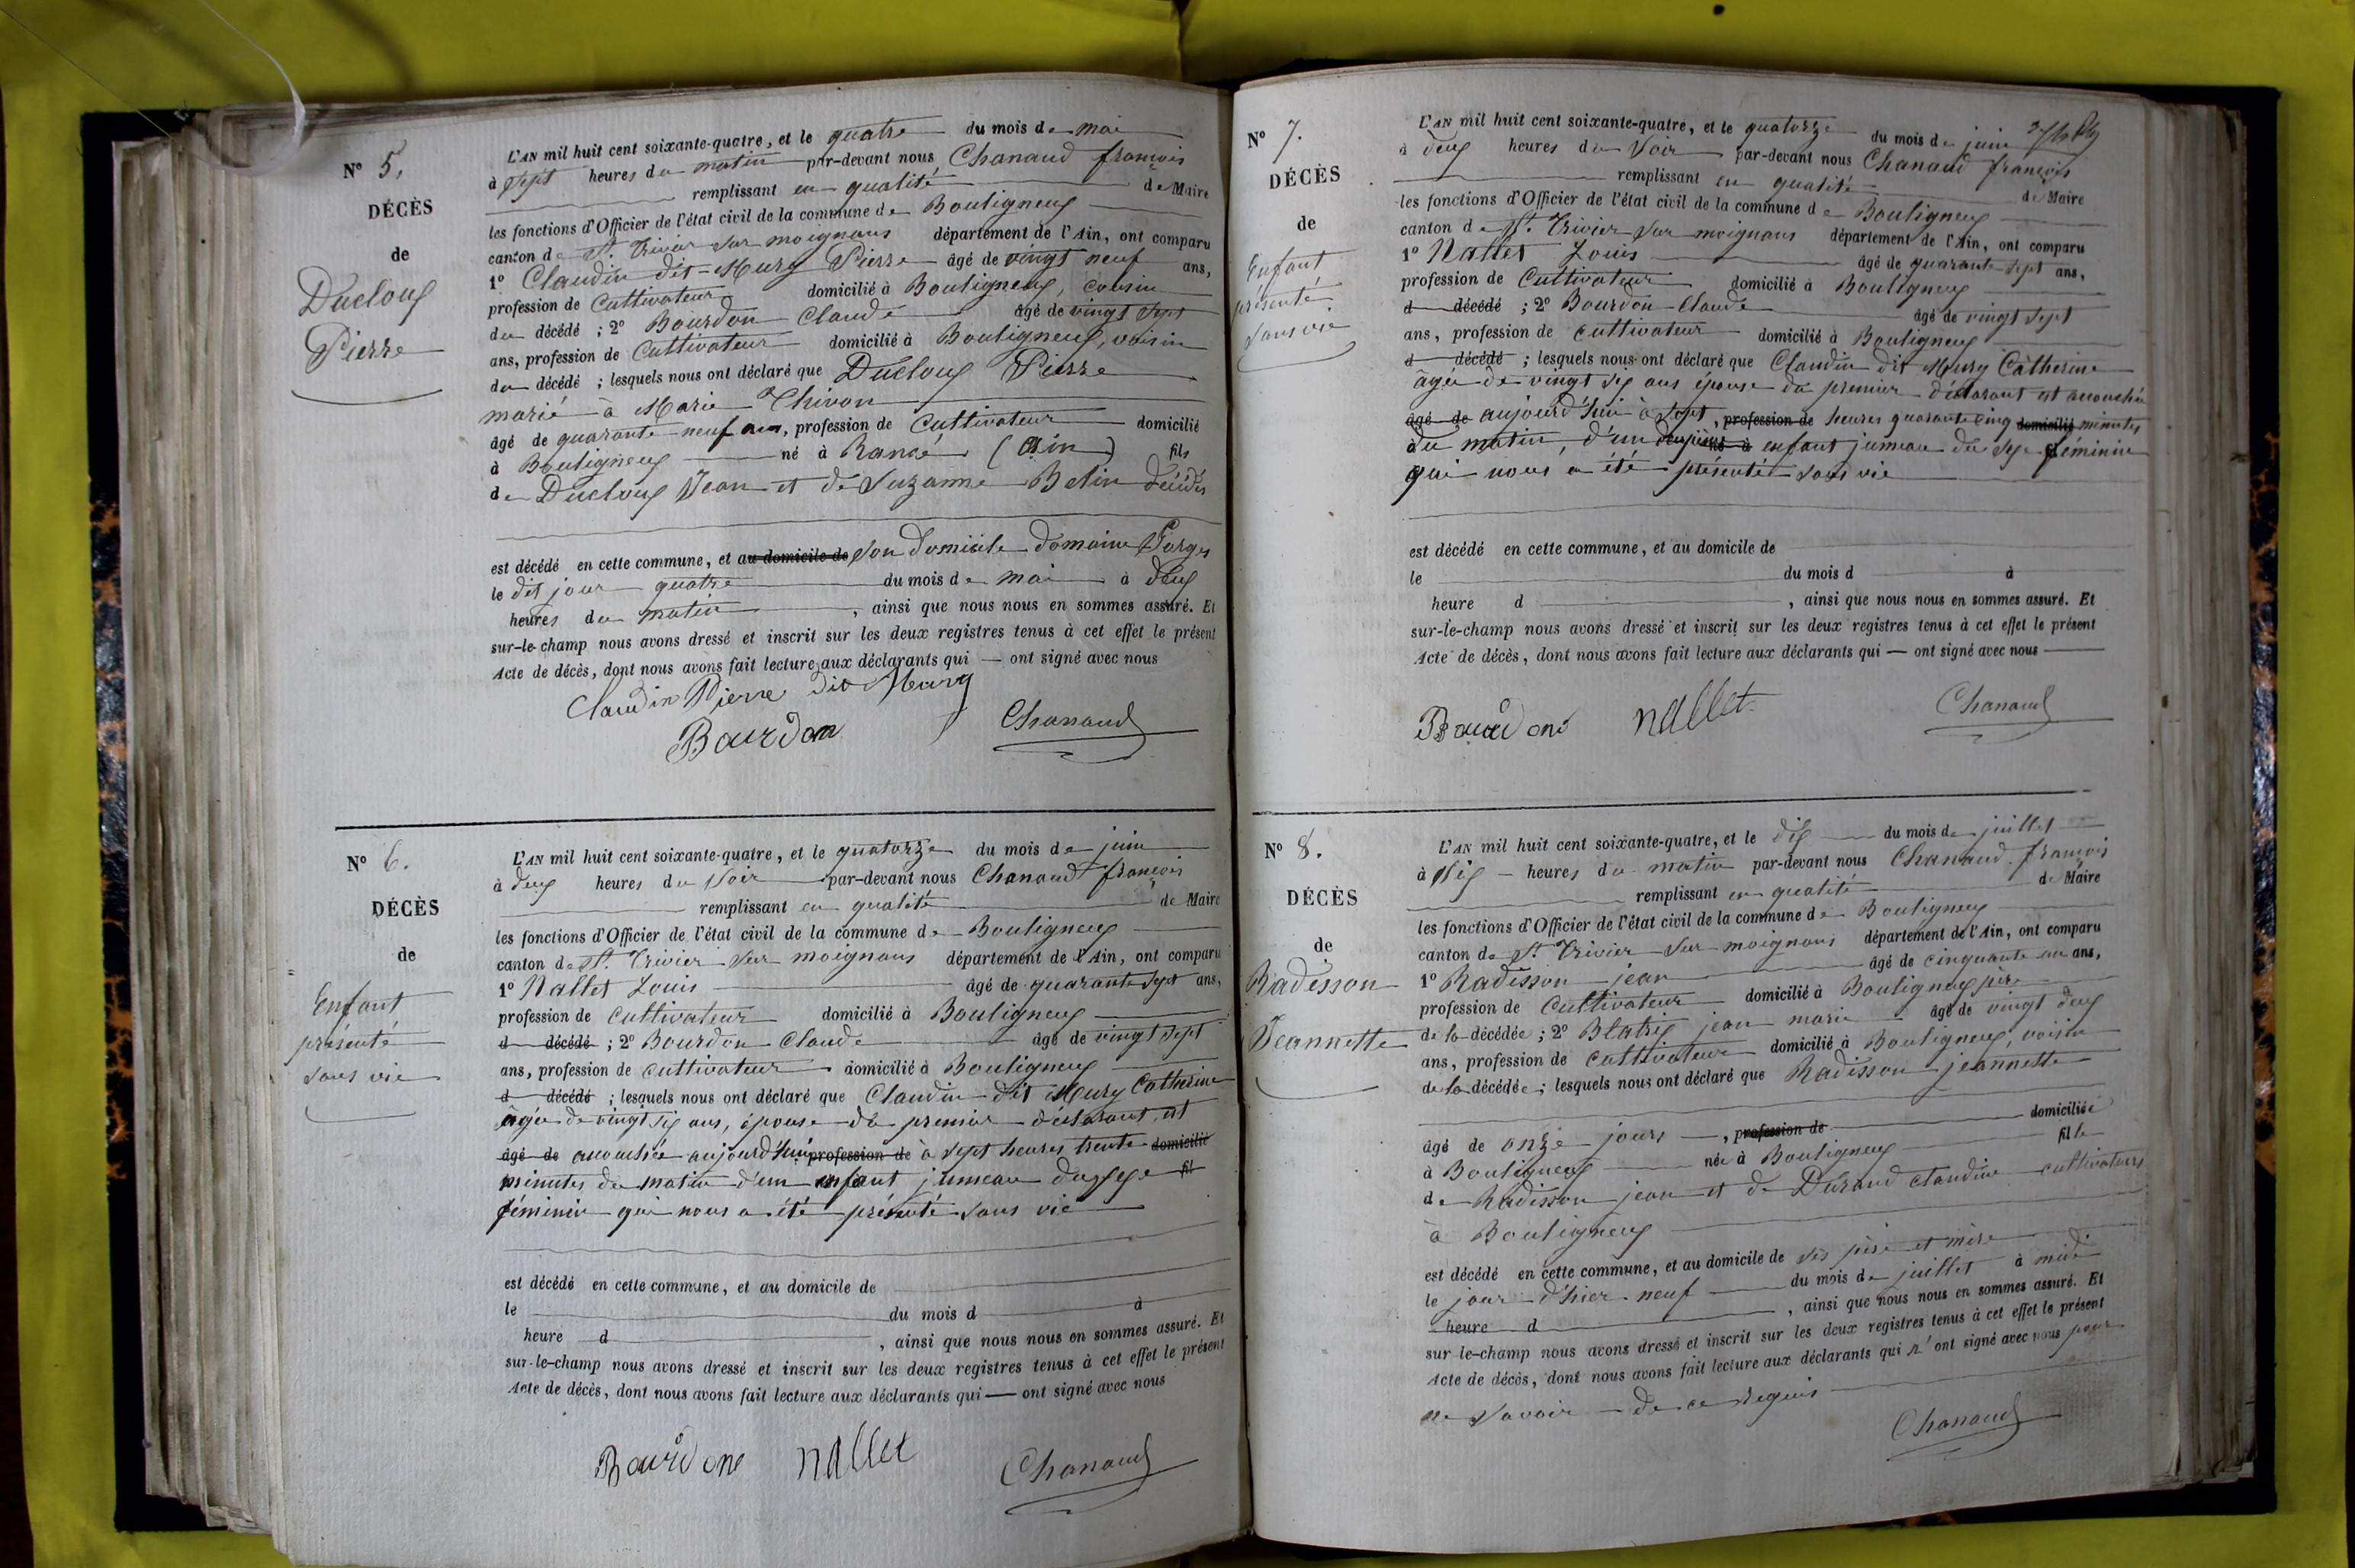 N° 5.
DÉCÈS
de
Ducloux
Pierre
L'AN mil huit cent soixante-quatre, et le quatre du mois de mai
à sept heures du matin par-devant nous Chanaud françois
remplissant en qualité de Maire
les fonctions d'Officier de l'état civil de la commune de Bouligneux
canton de St. Trivier sur moignans département de l'Ain, ont comparu
1° Claudin dit Mury Pierre âgé de vingt neuf ans,
profession de Cultivateur domicilié à Bouligneux, cousin
du décédé ; 2° Bourdon Claude âgé de vingt sept
ans, profession de Cultivateur domicilié à Bouligneux, voisin
du décédé ; lesquels nous ont déclaré que Ducloux Pierre
marié à Marie Chivon
âgé de quarante neuf ans, profession de Cultivateur domicilié
à Bouligneux né à Rancé (Ain) fils
de Ducloux Jean et de Suzanne Belin décédés
est décédé en cette commune, et au domicile de son domicile domaine
le dit jour quatre du mois de mai à deux
heures du matin, ainsi que nous nous en sommes assuré. Et
sur-le-champ nous avons dressé et inscrit sur les deux registres tenus à cet effet le présent
Acte de décès, dont nous avons fait lecture aux déclarants qui — ont signé avec nous
Claudin Pierre dit Mury
Bourdon Chanaud
N° 6.
DÉCÈS
de
Enfant
présenté
sans vie
L'AN mil huit cent soixante-quatre, et le quatorze du mois de juin
à deux heures du soir par-devant nous Chanaud françois
remplissant en qualité de Maire
les fonctions d'Officier de l'état civil de la commune de Bouligneux
canton de St. Trivier sur moignans département de l'Ain, ont comparu
1° Nallet Louis âgé de quarante sept ans,
profession de Cultivateur domicilié à Bouligneux
d décédé ; 2° Bourdon Claude âgé de vingt sept
ans, profession de cultivateur domicilié à Bouligneux
d décédé ; lesquels nous ont déclaré que Claudin dit Mury Catherine
âgée de vingt six ans, épouse du premier déclarant, est
âgé de accouchée aujourd'hui profession de à sept heures trente domicilié
minutes du matin d'un enfant jumeau du sexe fil
féminin qui nous a été présenté sans vie
est décédé en cette commune, et au domicile de
le du mois d à
heure d , ainsi que nous nous en sommes assuré. Et
sur-le-champ nous avons dressé et inscrit sur les deux registres tenus à cet effet le présent
Acte de décès, dont nous avons fait lecture aux déclarants qui — ont signé avec nous
Bourdon nallet Chanaud
N° 7.
DÉCÈS
de
Enfant
présenté
sans vie
L'AN mil huit cent soixante-quatre, et le quatorze du mois de juin
à deux heures du soir par-devant nous Chanaud françois
remplissant en qualité de Maire
les fonctions d'Officier de l'état civil de la commune de Bouligneux
canton de St. Trivier sur moignans département de l'Ain, ont comparu
1° Nallet Louis âgé de quarante sept ans,
profession de Cultivateur domicilié à Bouligneux
d décédé ; 2° Bourdon Claude âgé de vingt sept
ans, profession de cultivateur domicilié à Bouligneux
d décédé ; lesquels nous ont déclaré que Claudin dit Mury Catherine
âgée de vingt six ans épouse du premier déclarant est accouchée
âgé de aujourd'hui à sept, profession de heures quarante cinq domicilié minutes
du matin, d'un deuxième né à enfant jumeau du sexe féminin
qui nous a été présenté sans vie
est décédé en cette commune, et au domicile de
le du mois d à
heure d , ainsi que nous nous en sommes assuré. Et
sur-le-champ nous avons dressé et inscrit sur les deux registres tenus à cet effet le présent
Acte de décès, dont nous avons fait lecture aux déclarants qui — ont signé avec nous
Bourdon nallet Chanaud
N° 8.
DÉCÈS
de
Radisson
Jeannette
L'AN mil huit cent soixante-quatre, et le dix du mois de juillet
à six heures du matin par-devant nous Chanaud françois
remplissant en qualité de Maire
les fonctions d'Officier de l'état civil de la commune de Bouligneux
canton de St Trivier sur moignans département de l'Ain, ont comparu
1° Radisson jean âgé de cinquante un ans,
profession de Cultivateur domicilié à Bouligneux père
de la décédée ; 2° Blatrix jean marie âgé de vingt deux
ans, profession de cultivateur domicilié à Bouligneux, voisin
de la décédée ; lesquels nous ont déclaré que Radisson jeannette
âgé de onze jours, profession de domiciliée
à Bouligneux née à Bouligneux fille
de Radisson jean et de Durand claudine cultivateurs
à Bouligneux
est décédé en cette commune, et au domicile de ses père et mère
le jour d'hier neuf du mois de juillet à midi
heure d , ainsi que nous nous en sommes assuré. Et
sur-le-champ nous avons dressé et inscrit sur les deux registres tenus à cet effet le présent
Acte de décès, dont nous avons fait lecture aux déclarants qui n'ont signé avec nous pour
ne savoir de ce requis
Chanaud